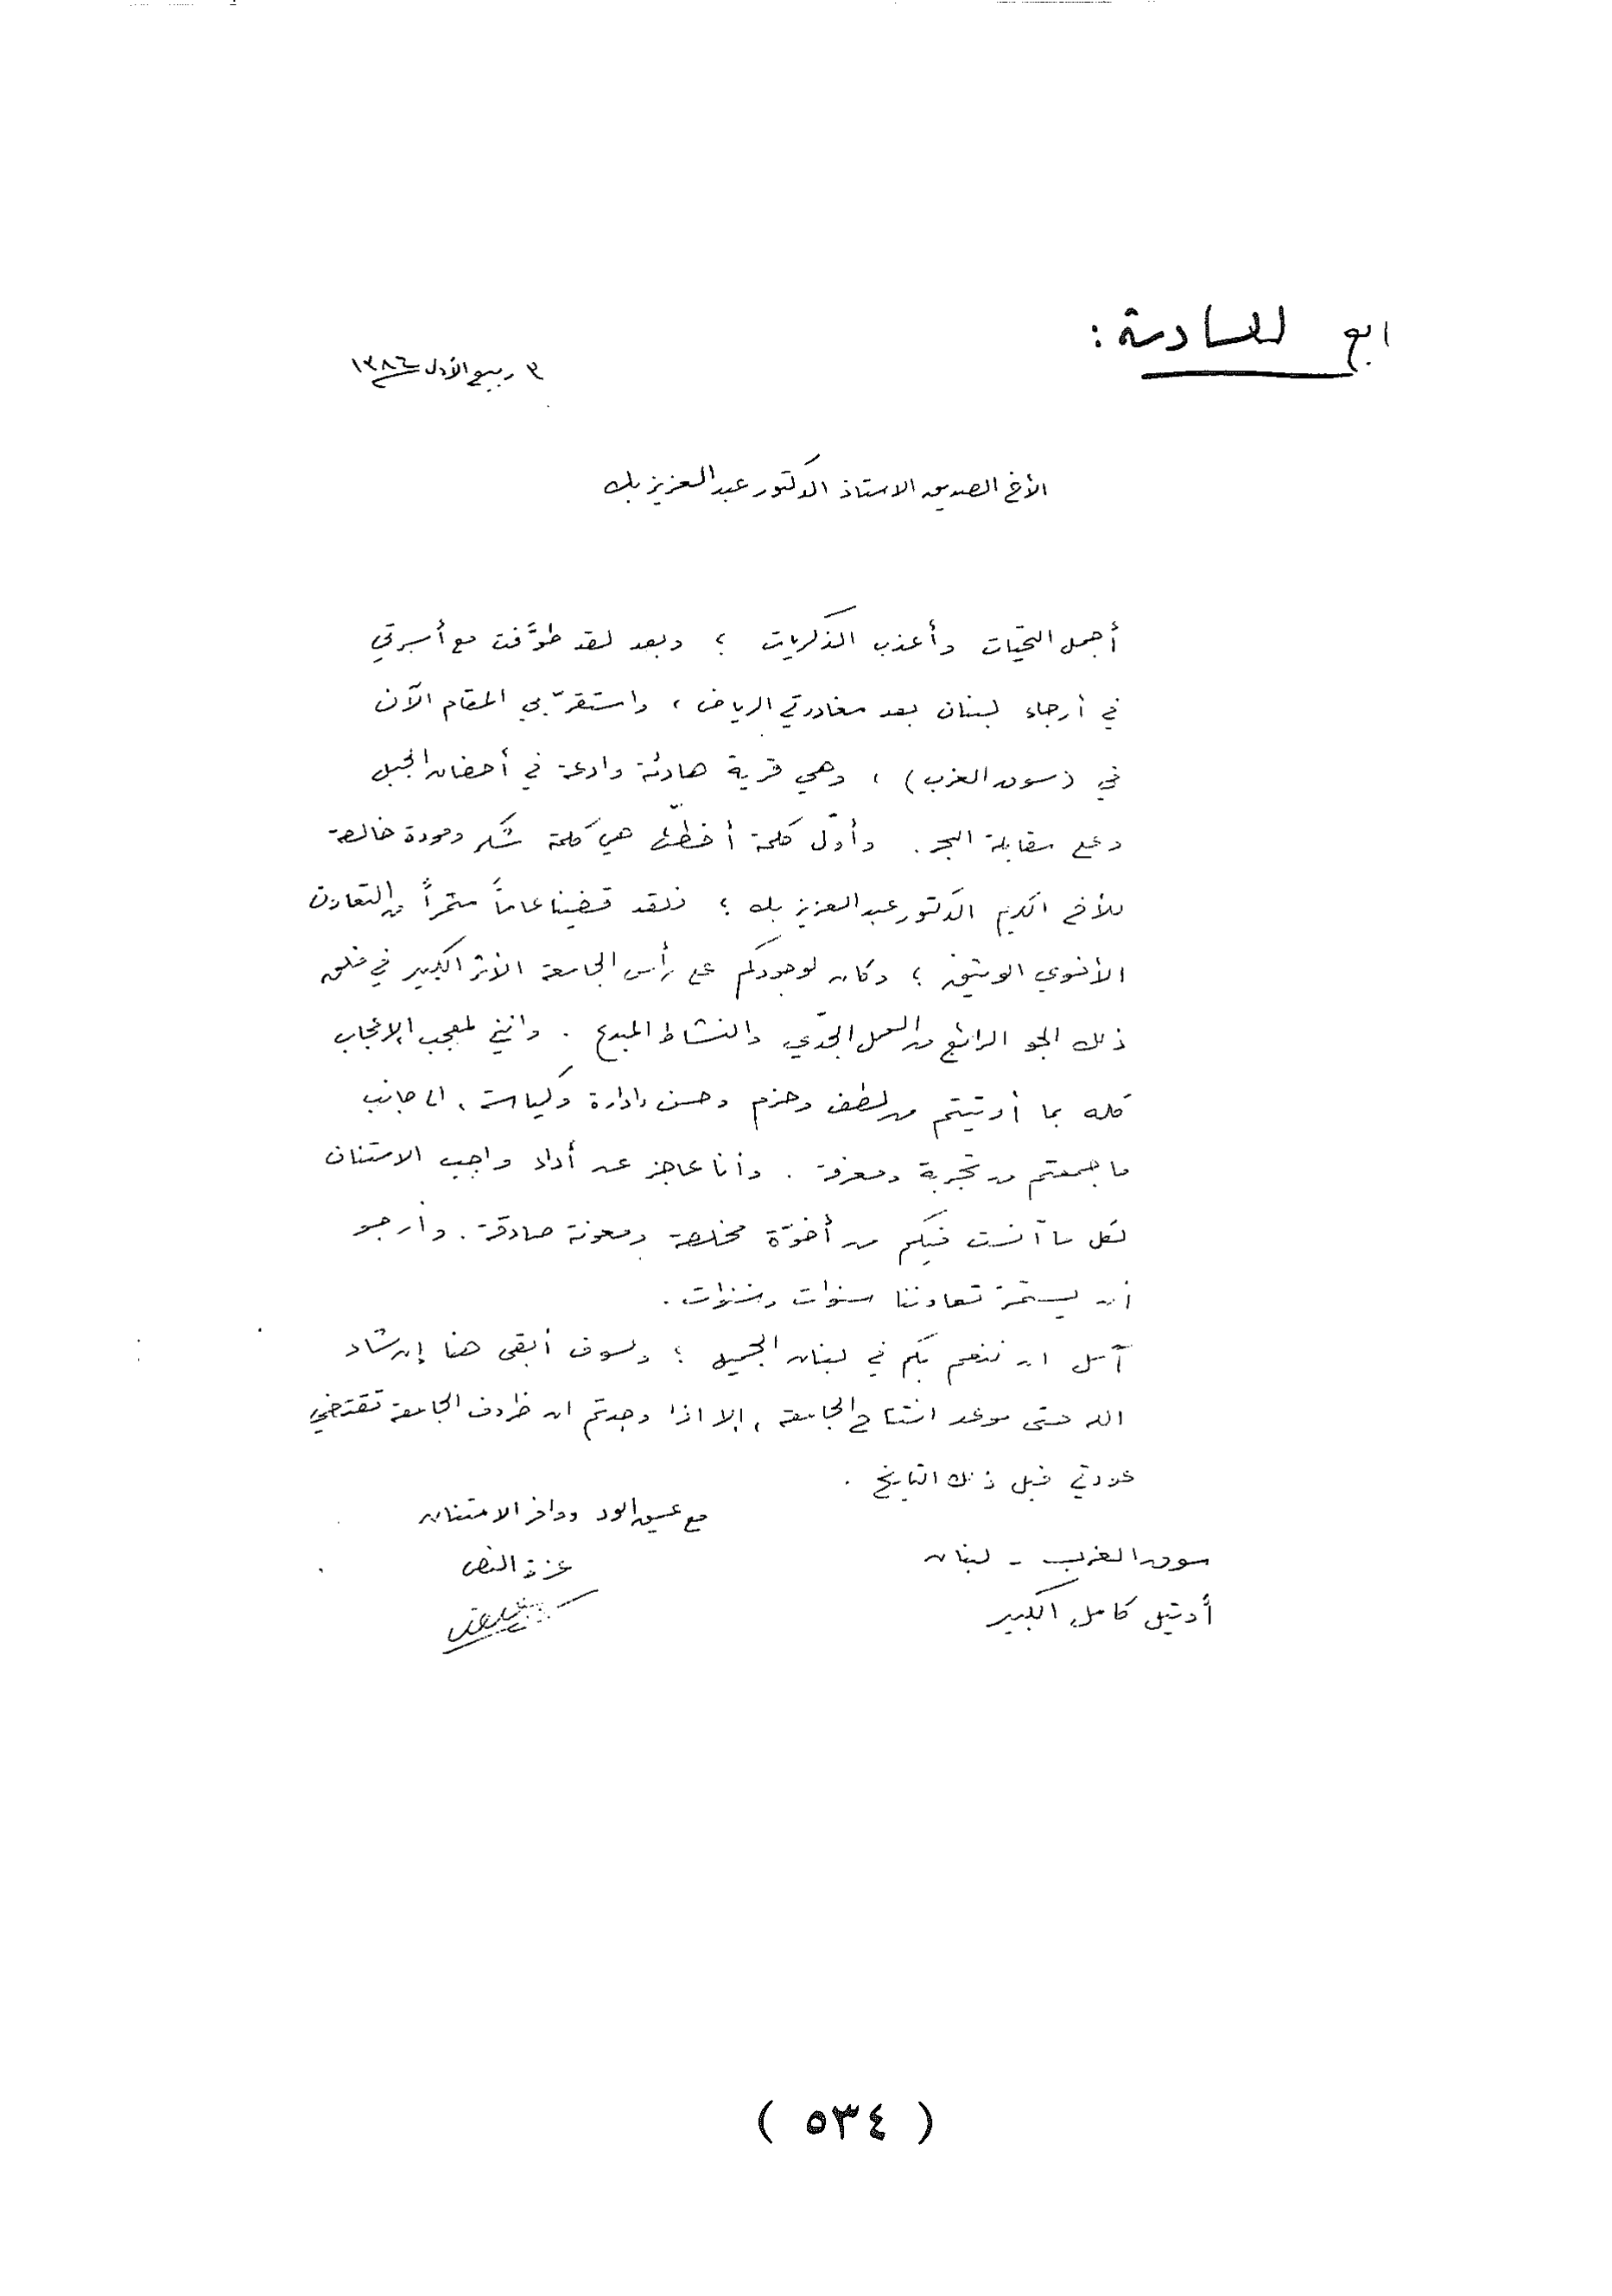 ابع للسادسة :
٣ ربيع الأول ١٣٨٤
الأخ الصديق الاستاذ الدكتور عبد العزيز بك
أجمل التحيّات وأعذب الذكريات ؛ وبعد لقد طوَّفت مع أسرتي
في أرجاء لبنان بعد مغادرتي الرياض ، واستقرّ بي المقام الآن
في (سوق الغرب) ، وهي قرية هادئة وادعة في أحضان الجبل
وعلى مقابلة البحر . وأوّل كلمة أخطّها هي كلمة شكر ومودة خالصة
للأخ الكريم الدكتور عبد العزيز بك ؛ فلقد قضينا عاماً مثمراً من التعاون
الأخوي الوثيق ؛ وكان لوجودكم على رأس الجامعة الأثر الكبير في خلق
ذلك الجو الرائع من العمل الجدّي والنشاط المبدع . وانني لمعجب الإعجاب
كله بما أوتيتم من لطف وحزم وحسن إدارة وكياسة ، الى جانب
ما جمعتم من تجربة ومعرفة . وأنا عاجز عن أداء واجب الامتنان
لكل ما آنست فيكم من أخوّة مخلصة ومعونة صادقة . وأرجو
أن يستمرّ تعاوننا سنوات وسنوات .
آمل ان ننعم بكم في لبنان الجميل ؛ ولسوف أبقى هنا إن شاء
الله حتى موعد افتتاح الجامعة ، إلا اذا وجدتم ان ظروف الجامعة تقتضي
عودتي قبل ذلك التاريخ .
مع عميق الود ووافر الامتنان
سوق الغرب - لبنان
عزة النص
أوتيل كامل الكبير
( ٥٣٤ )